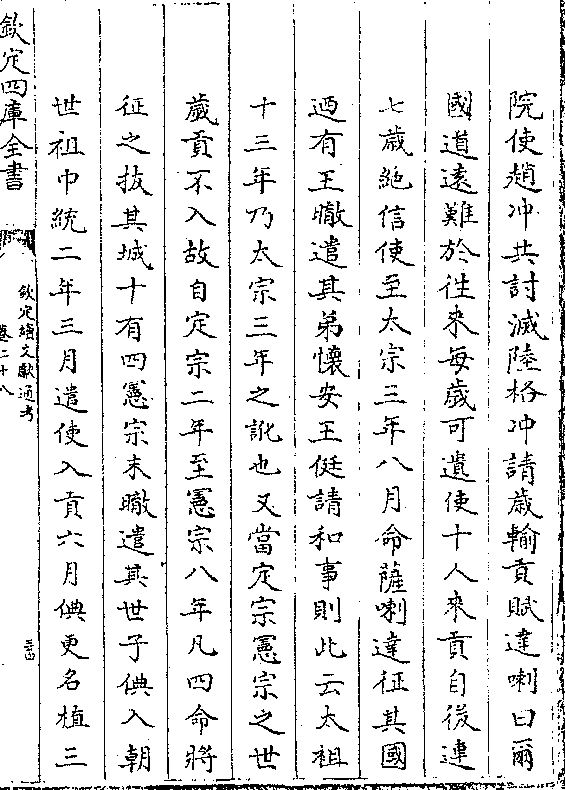 院使趙冲共討滅陸格冲請歲輸貢賦達喇曰爾
國道遠難於往來每歲可遣使十人來貢自後連
七歲絶信使至太宗三年八月命薩喇達征其國
迺有王㬚遣其弟懐安王侹請和事則此云太祖
十三年乃太宗三年之訛也又當定宗憲宗之世
歲貢不入故自定宗二年至憲宗八年凡四命將
征之抜其城十有四憲宗末㬚遣其世子倎入朝
世祖中統二年三月遣使入貢六月倎更名植三
欽定四庫全書
欽定續文獻通考
卷二十八